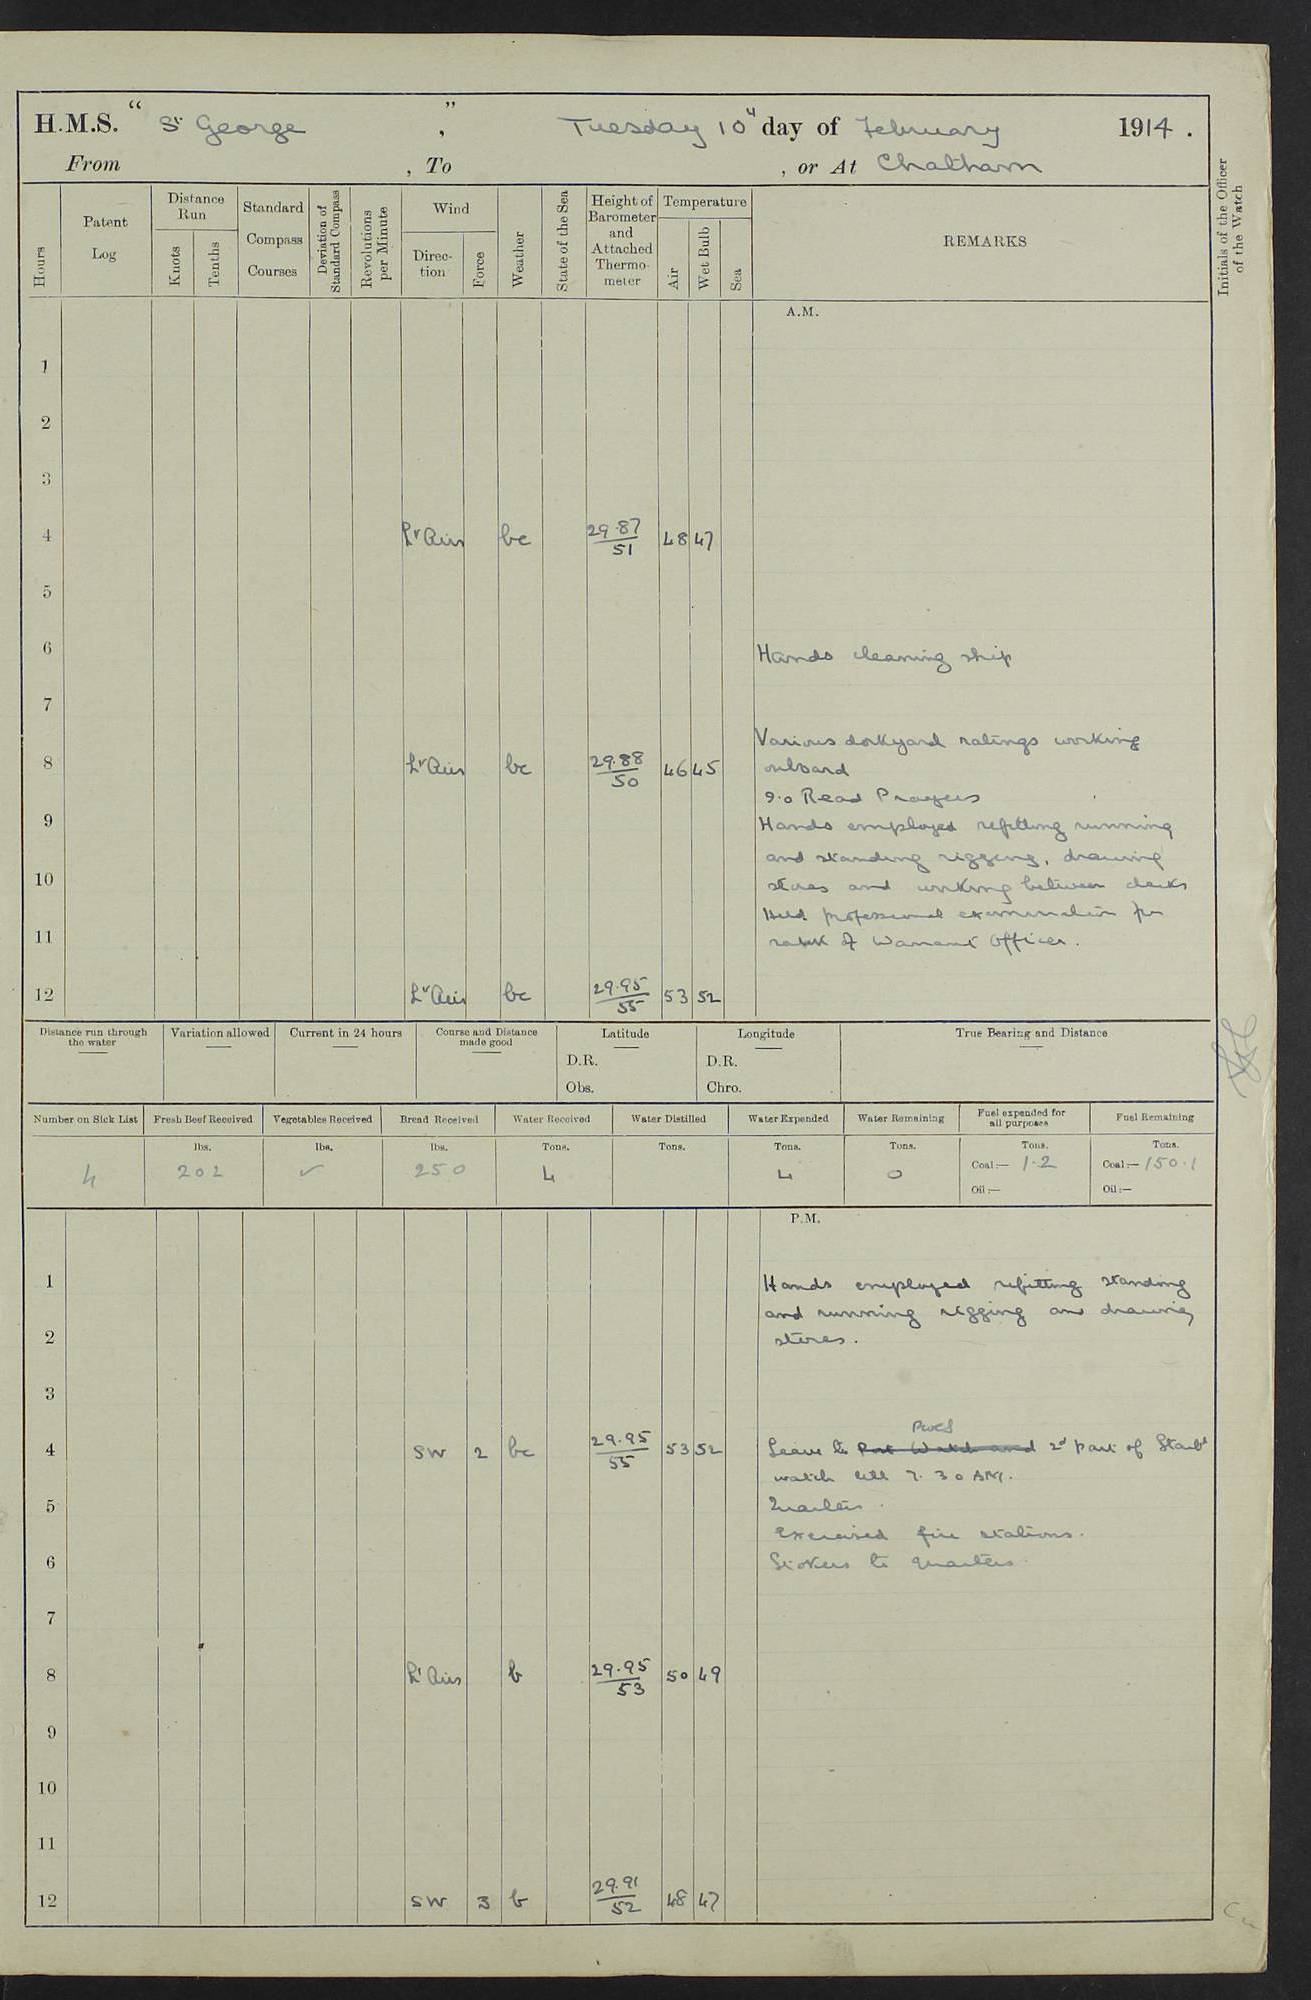 H.M.S. "St George", Tuesday 10th day of February 1914.
From , To , or At Chatham
Hours
Patent Log
Distance Run
Knots
Tenths
Standard Compass Courses
Deviation of Standard Compass
Revolutions per Minute
Wind
Direction
Force
Weather
State of the Sea
Height of Barometer and Attached Thermometer
Temperature
Air
Wet Bulb
Sea
REMARKS
Initials of the Officer of the Watch
A.M.
1
2
3
4 Lt Airs bc 29.87/51 48 47
5
6 Hands cleaning ship
7
Various dockyard ratings working
8 Lt Airs bc 29.88/50 46 45 onboard
9.0 Read Prayers
9 Hands employed refitting running
and standing rigging, drawing
10 stores and working between decks
Held professional examination for
11 rank of Warrant Officer.
12 Lt Airs bc 29.95/55 53 52
Distance run through the water
Variation allowed
Current in 24 hours
Course and Distance made good
Latitude
D.R.
Obs.
Longitude
D.R.
Chro.
True Bearing and Distance
Number on Sick List
Fresh Beef Received
Vegetables Received
Bread Received
Water Received
Water Distilled
Water Expended
Water Remaining
Fuel expended for all purposes
Fuel Remaining
lbs. lbs. lbs. Tons. Tons. Tons. Tons. Tons. Tons.
4 202 ✓ 250 4 4 0 Coal:— 1.2 Coal:— 150.1
Oil:— Oil:—
P.M.
1 Hands employed refitting standing
and running rigging and drawing
2 stores.
3
4 SW 2 bc 29.95/55 53 52 Leave to Port Watch and 2d part of Starbd
watch till 7.30 AM.
5 Quarters.
Exercised fire stations.
6 Stokers to quarters.
7
8 Lt Airs b 29.95/53 50 49
9
10
11
12 SW 3 b 29.91/52 48 47